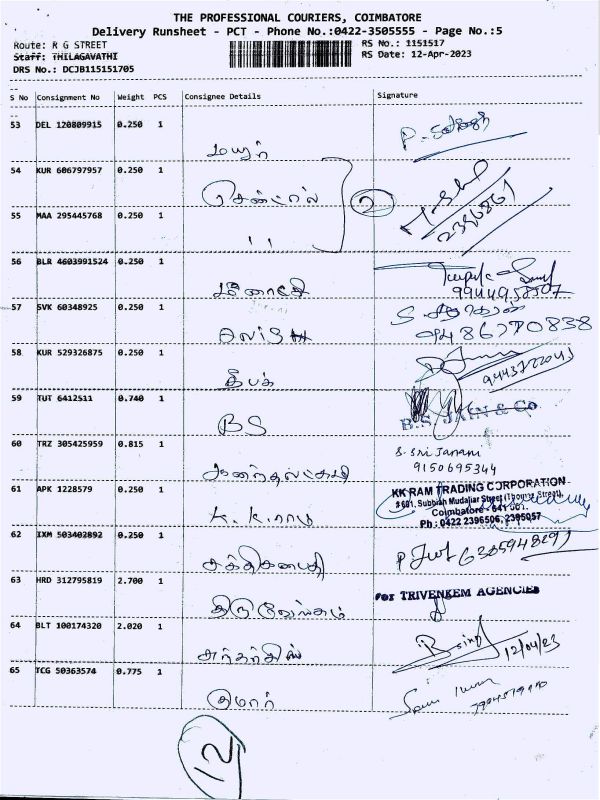 THE PROFESSIONAL COURIERS, COIMBATORE
Delivery Runsheet - PCT - Phone No.:0422-3505555 - Page No.:5
Route: R G STREET
RS No.: 1151517
Staff: THILAGAVATHI
RS Date: 12-Apr-2023
DRS No.: DCJB115151705
S No Consignment No Weight PCS Consignee Details Signature
53 DEL 120809915 0.250 1
மயூர்
54 KUR 606797957 0.250 1
சென்ட்ரல்
2
2396861
55 MAA 295445768 0.250 1
"
56 BLR 4603991524 0.250 1
மீனாட்சி
57 SVK 60348925 0.250 1
9486270838
58 KUR 529326875 0.250 1
தீபக்
59 TUT 6412511 0.740 1
BS
B.S. JAIN & Co.
60 TRZ 305425959 0.815 1
S. Sri Janani
9150695344
61 APK 1228579 0.250 1
K.K.ராம்
KK RAM TRADING CORPORATION
# 681, Subbiah Mudaliar Street (Thomas Street)
Coimbatore - 641 001.
Ph : 0422 2396506, 2395057
62 IXM 503402892 0.250 1
சக்திகணபதி
63 HRD 312795819 2.700 1
திருவேங்கடம்
For TRIVENKEM AGENCIES
64 BLT 100174320 2.020 1
12/04/23
65 TCG 50363574 0.775 1
குமார்
12